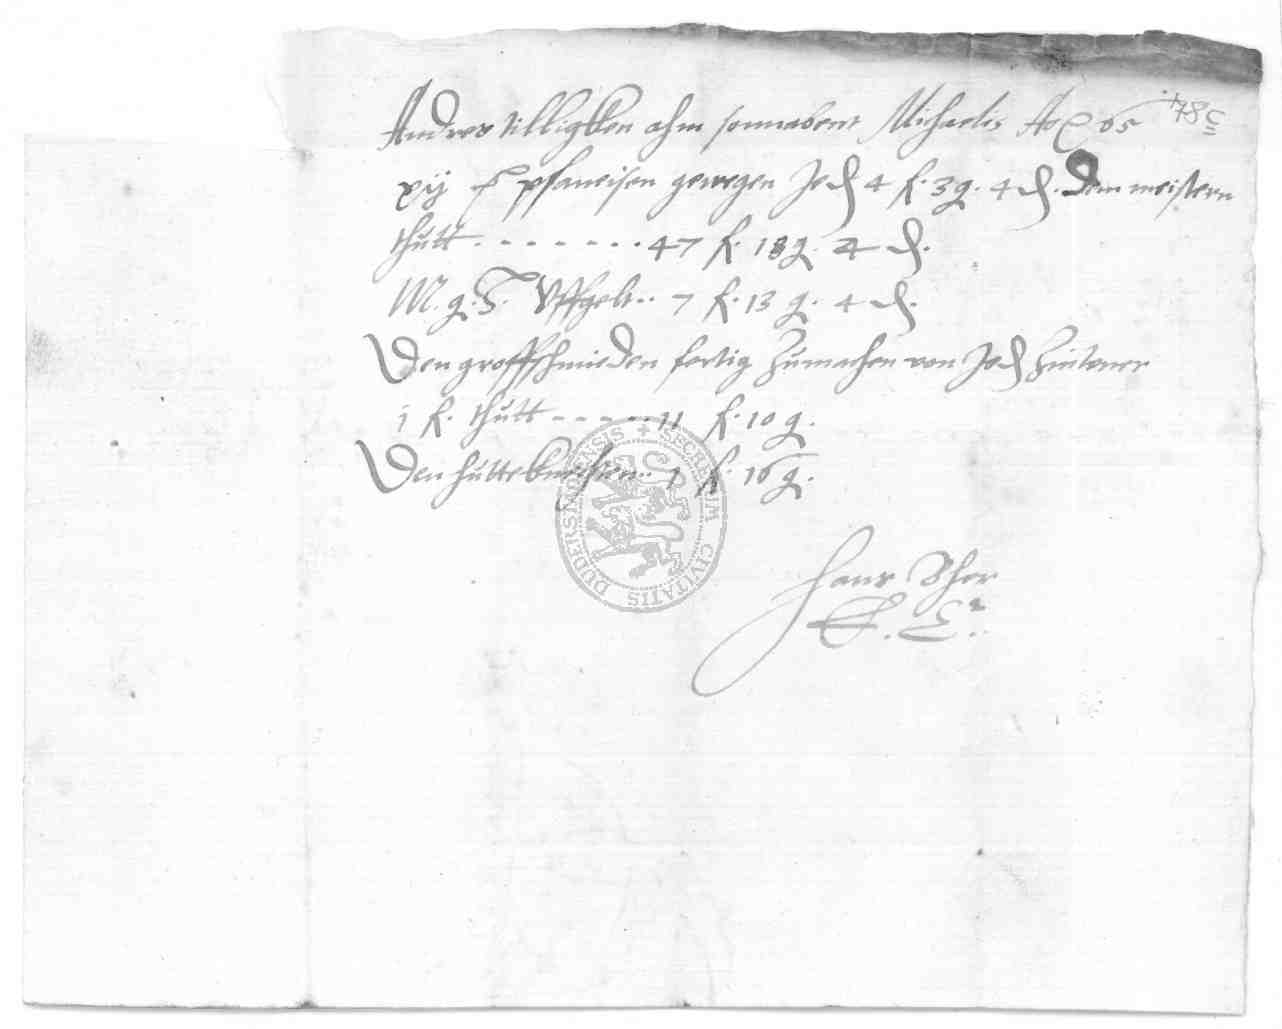 Andres Tilligken ahm sonnabent Michaelis Ao 65
xij pfaneisen gewegen Jed 4 f. 3 g. 4 d. Dem meistern
thutt - - - - - - - 47 f. 18 g. 4 d.
M. g. H. Uffgelt .. 7 f. 13 g. 4 d.
Den groffschmieden fertig zumachen von Jed Zintener
1 f. thutt - - - - - 11 f. 10 g.
Den hutteknechten .. 1 f. 16 g.
Hans
SECRETUM CIVITATIS DUDERSTADENSIS